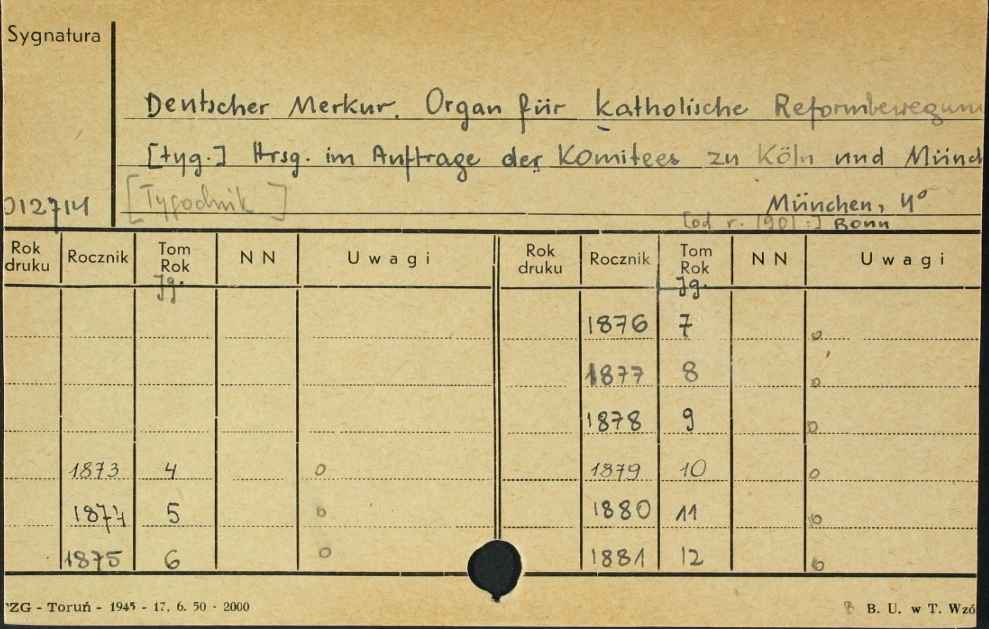 Sygnatura
Deutscher Merkur. Organ für katholische Reformbewegun
[tyg.] Hrsg. im Auftrage der Komitees zu Köln und Münch
[Tygodnik]
012714 München, 4°
[od r. 1901:] Bonn
Rok druku Rocznik Tom Rok NN Uwagi Rok druku Rocznik Tom Rok NN Uwagi
Jg. Jg.
1876 7 o
1877 8 o
1878 9 o
1873 4 o 1879 10 o
1874 5 o 1880 11 o
1875 6 o 1881 12 o
ZG - Toruń - 1945 - 17. 6. 50 - 2000 B. U. w T. Wzó